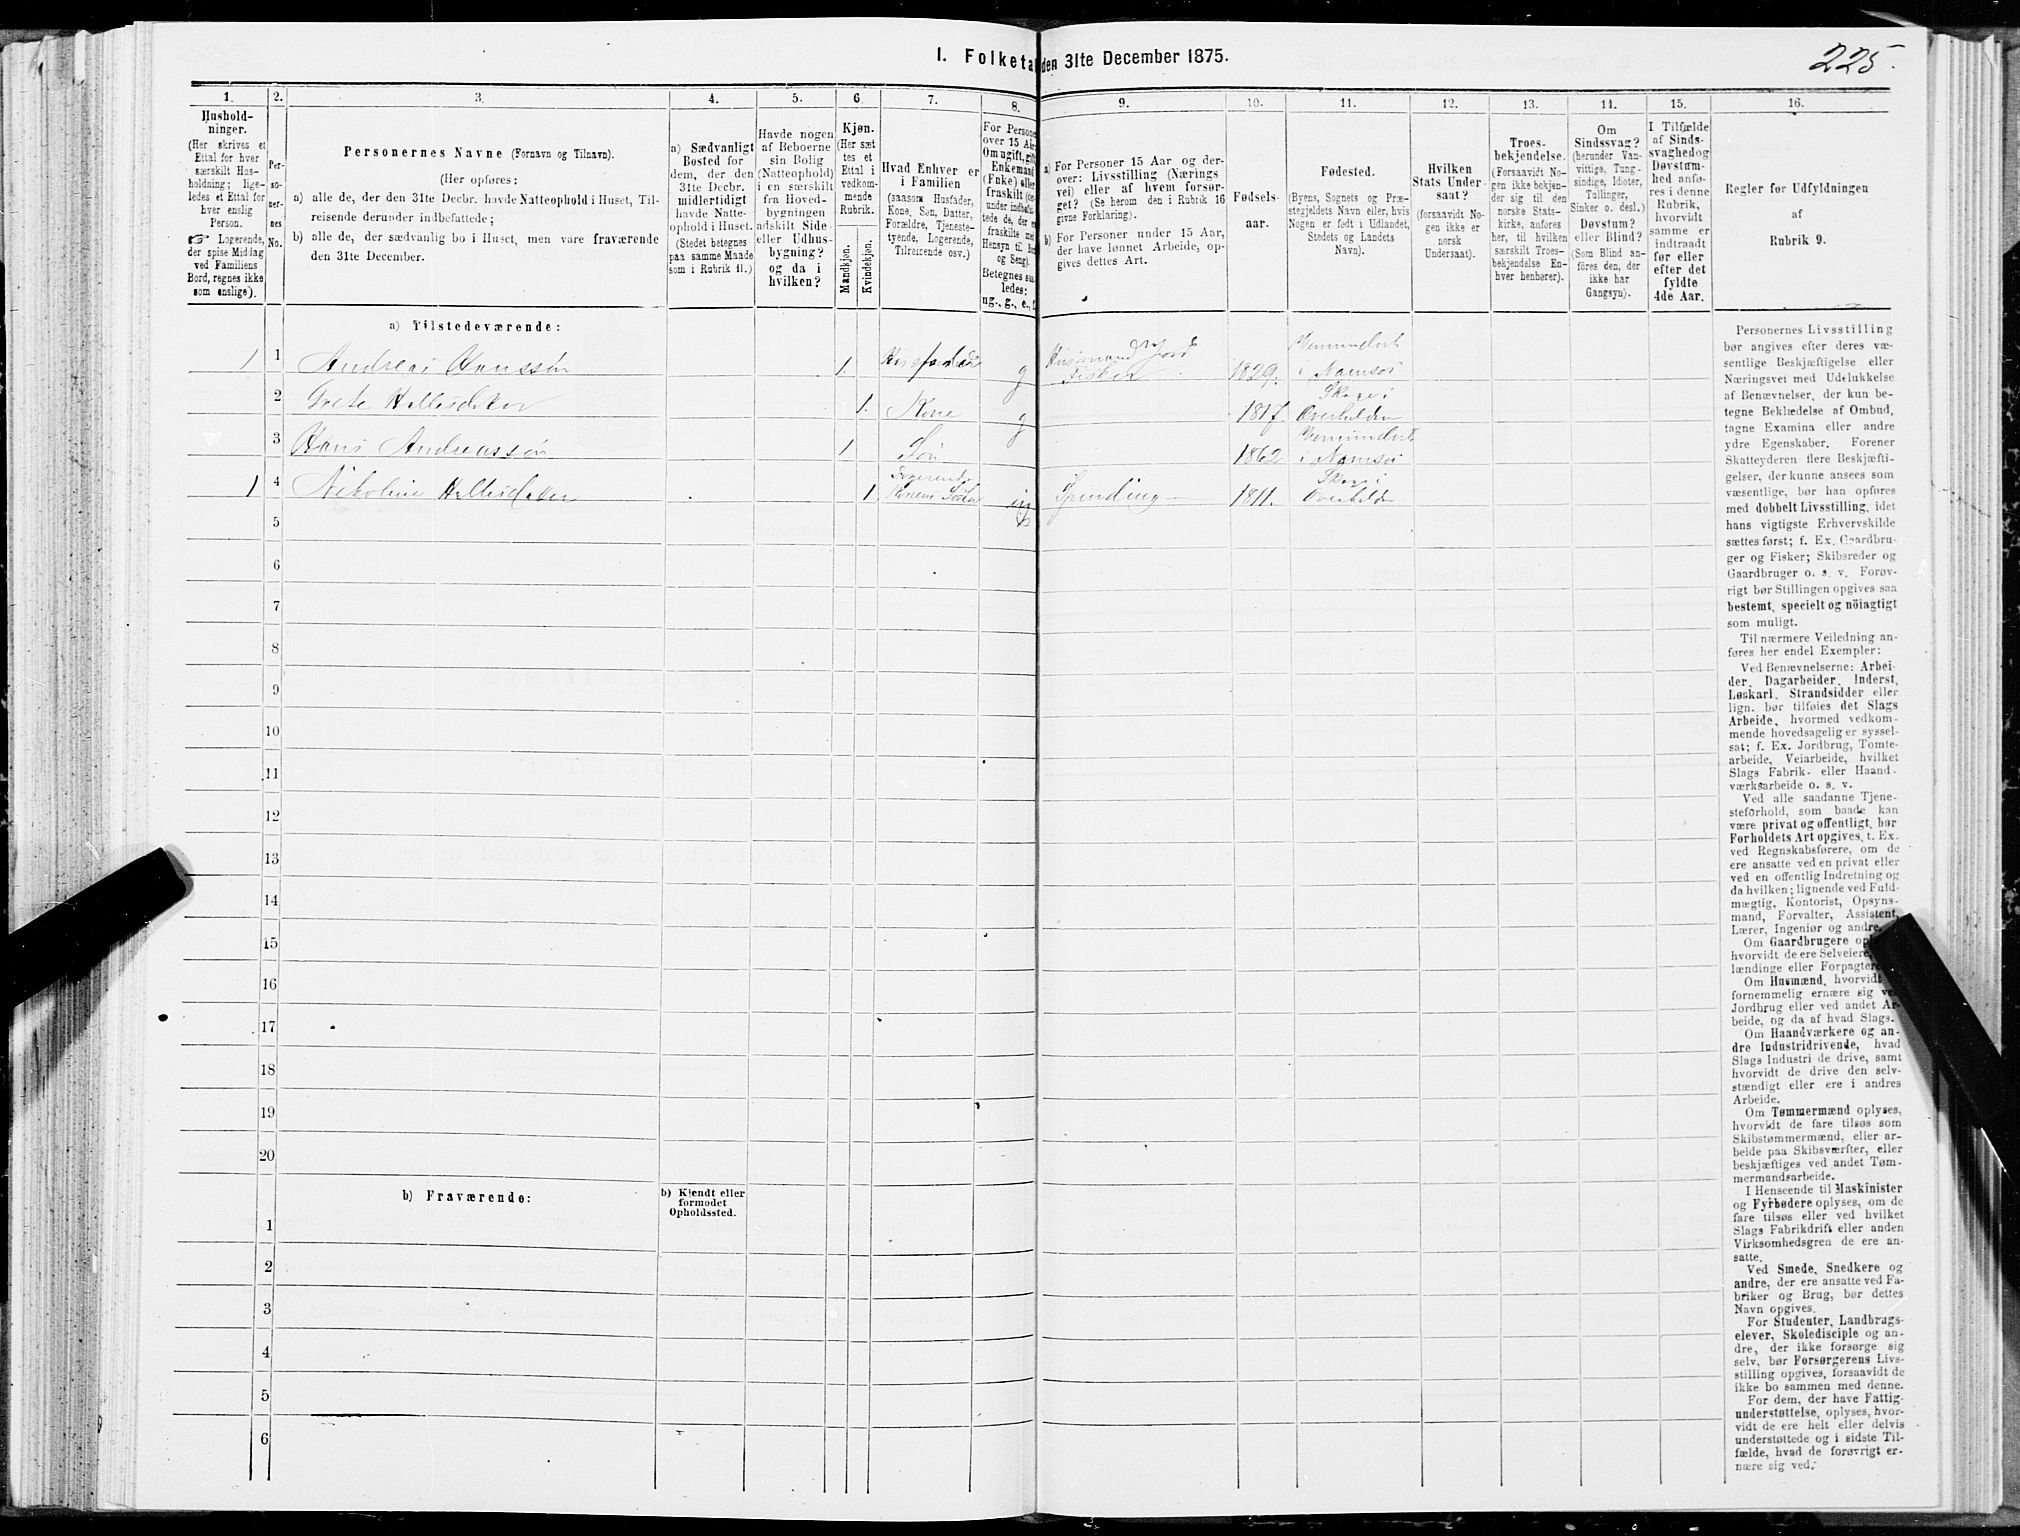 I. Folketal den 31te December 1875.
225.
1.
2.
3.
4.
5.
6.
7.
8.
9.
10.
11.
12.
13.
14.
15.
16.
Hushold-
ninger.
(Her skrives et
Ettal for hver
særskilt Hus-
holdning; lige-
ledes et Ettal for
hver enslig
Person.
☞ Logerende,
der spise Middag
ved Familiens
Bord, regnes ikke
som enslige).
Per-
so-
ner-
nes
No.
Personernes Navne (Fornavn og Tilnavn).
(Her opføres:
a) alle de, der den 31te Decbr. havde Natteophold i Huset, Til-
reisende derunder indbefattede;
b) alle de, der sædvanlig bo i Huset, men vare fraværende
den 31te December.
a) Sædvanligt
Bosted for
dem, der den
31te Decbr.
midlertidigt
havde Natte-
ophold i Huset.
(Stedet betegnes
paa samme Maade
som i Rubrik 11.)
Havde nogen
af Beboerne
sin Bolig
(Natteophold)
i en særskilt
fra Hoved-
bygningen
adskilt Side-
eller Udhus-
bygning?
og da i
hvilken?
Kjøn.
(Her sæt
tes et
Ettal i
vedkom-
mende
Rubrik.
Mandkjøn.
Kvindekjøn.
Hvad Enhver er
i Familien
(saasom Husfader,
Kone, Søn, Datter,
Forældre, Tjeneste-
tyende, Logerende,
Tilreisende osv.)
For Persone
over 15 Aar
Om ugift, gift
Enkemand
(Enke) eller
fraskilt
under indbefat-
tede de, der er
fraskilte med
Hensyn til Bord
og Seng).
Betegnes saa-
ledes:
ug., g., e., f.
a) For Personer 15 Aar og der-
over: Livsstilling (Nærings
vei) eller af hvem forsør-
get? (Se herom den i Rubrik 16
givne Forklaring).
b) For Personer under 15 Aar,
der have lønnet Arbeide, op-
gives dettes Art.
Fødsels-
aar.
Fødested.
(Byens, Sognets og Præ-
stegjeldets Navn eller, hvis
Nogen er født i Udlandet,
Stedets og Landets
Navn).
Hvilken
Stats Under-
saat?
(forsaavidt No-
gen ikke er
norsk
Undersaat).
Troes-
bekjendelse.
(Forsaavidt No-
gen ikke bekjen-
der sig til den
norske Stats-
kirke, anføres
her, til hvilken
særskilt Troes-
bekjendelse En-
hver henhører).
Om
Sindssvag?
(herunder Van-
vittige, Tung-
sindige, Idioter,
Tullinger,
Sinker o. desl.)
Døvstum?
eller Blind?
(Som Blind an-
føres den, der
ikke har
Gangsyn).
I Tilfælde
af Sinds-
svaghed og
Døvstum-
hed anfø-
res i denne
Rubrik,
hvorvidt
samme er
indtraadt
før eller
efter det
fyldte
4de Aar.
Regler før Udfyldningen
af
Rubrik 9.
a) Tilstedeværende:
1 1 Andreas Hanssøn 1. Husfader g Husmand m Jord Fisker. 1829. i Namsos
2 Grete 1. Kone g 1817. Skage i Overhalden
3 Hans Andreassøn 1 Søn 1862 i Namsos
1 4 Nikoline 1 Logerende Konens Søster ug Spinding 1811. Skage i Overhalden
5
6
7
8
9
10
11
12
13
14
15
16
17
18
19
20
b) Fraværende:
b) Kjendt eller
formodet
Opholdssted.
1
2
3
4
5
6
Personernes Livsstilling
bør angives efter deres væ-
sentlige Beskjæftigelse eller
Næringsvei med Udelukkelse
af Benævnelser, der kun be-
tegne Beklædelse af Ombud,
tagne Examina eller andre
ydre Egenskaber. Forener
Skatteyderen flere Beskjæfti-
gelser, der kunne ansees som
væsentlige, bør han opføres
med dobbelt Livsstilling, idet
hans vigtigste Erhvervskilde
sættes først; f. Ex. Gaardbru-
ger og Fisker; Skibsreder og
Gaardbruger o. s. v. Forøv-
rigt bør Stillingen opgives saa
bestemt, specielt og nöiagtigt
som muligt.
Til nærmere Veiledning an-
føres her endel Exempler:
Ved Benævnelserne: Arbei-
der, Dagarbeider, Inderst,
Løskarl, Strandsidder eller
lign. bør tilføies det Slags
Arbeide, hvormed vedkom-
mende hovedsagelig er syssel-
sat; f. Ex. Jordbrug, Tomte-
arbeide, Veiarbeide, hvilket
Slags Fabrik- eller Haand-
værksarbeide o. s. v.
Ved alle saadanne Tjene-
steforhold, som baade kan
være privat og offentligt, bør
Forholdets Art opgives, t. Ex.
ved Regnskabsførere, om de
ere ansatte ved en privat eller
ved en offentlig Indretning og
da hvilken; lignende ved Fuld-
mægtig, Kontorist, Opsyns-
mand, Forvalter, Assistent,
Lærer, Ingeniør og andre.
Om Gaardbrugere
hvorvidt de ere Selveiere,
lændinge eller Forpagtere
Om Husmænd, hvorvidt
fornemmelig ernære sig
Jordbrug eller ved andet Ar-
beide, og da af hvad Slags.
Om Haandværkere og an-
dre Industridrivende, hvad
Slags Industri de drive, samt
hvorvidt de drive den selv-
stændigt eller ere i andres
Arbeide.
Om Tømmermænd oplyses,
hvorvidt de fare tilsøs som
Skibstømmermænd, eller ar-
beide paa Skibsværfter, eller
beskjæftiges ved andet Tøm-
mermandsarbeide.
I Henseende til Maskinister
og Fyrbødere oplyses, om de
fare tilsøs eller ved hvilket
Slags Fabrikdrift eller anden
Virksomhedsgren de ere an-
satte.
Ved Smede, Snedkere og
andre, der ere ansatte ved Fa-
briker og Brug, bør dettes
Navn opgives.
For Studenter, Landbrugs-
elever, Skoledisciple og an-
dre, der ikke forsørge sig
selv, bør Forsørgerens Livs-
stilling opgives, forsaavidt de
ikke bo sammen med denne.
For dem, der have Fattig-
understøttelse, oplyses, hvor-
vidt de ere helt eller delvis
understøttede og i sidste Til-
fælde, hvad de forøvrigt er-
nære sig ved.